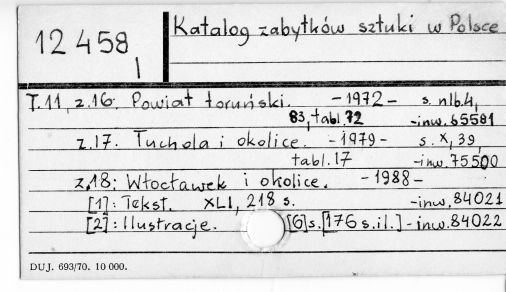 12 458
I
Katalog zabytków sztuki w Polsce
T.11, z.16. Powiat toruński. -1972- s. nlb.4,
83, tabl. 72 -inw. 65581
z.17. Tuchola i okolice. -1979- s. X, 39,
tabl. 17 -inw. 75500
z.18: Włocławek i okolice. -1988-
[1]: Tekst. XLI, 218 s. -inw. 84021
[2]: Ilustracje. [6]s. [176 s.il.] -inw. 84022
DUJ. 693/70. 10 000.